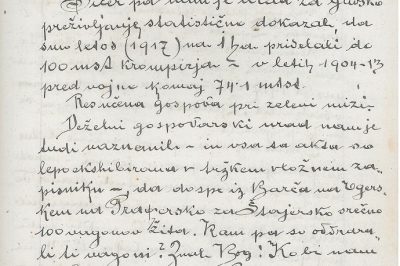 Sicer pa nam je urad za ljudsko
preživljanje statistično dokazal, da
smo letos (1917) na 1 ha pridelali do
100 mst krompirja – v letih 1904-13
pred vojno komaj 74·1 mtst.
Resnična gospoda pri zeleni mizi.
Deželni gospodarski urad nam je
tudi naznanil – in vsa ta akta so
lepo ekshibirana v tržkem vložnem za-
pisniku –, da dospe iz Barča na Oger-
skem na Pragersko za Štajersko srečno
100 vagonov žita. Kam pa so oddrdra-
li ti vagoni? Znati Bog! Ko bi nam